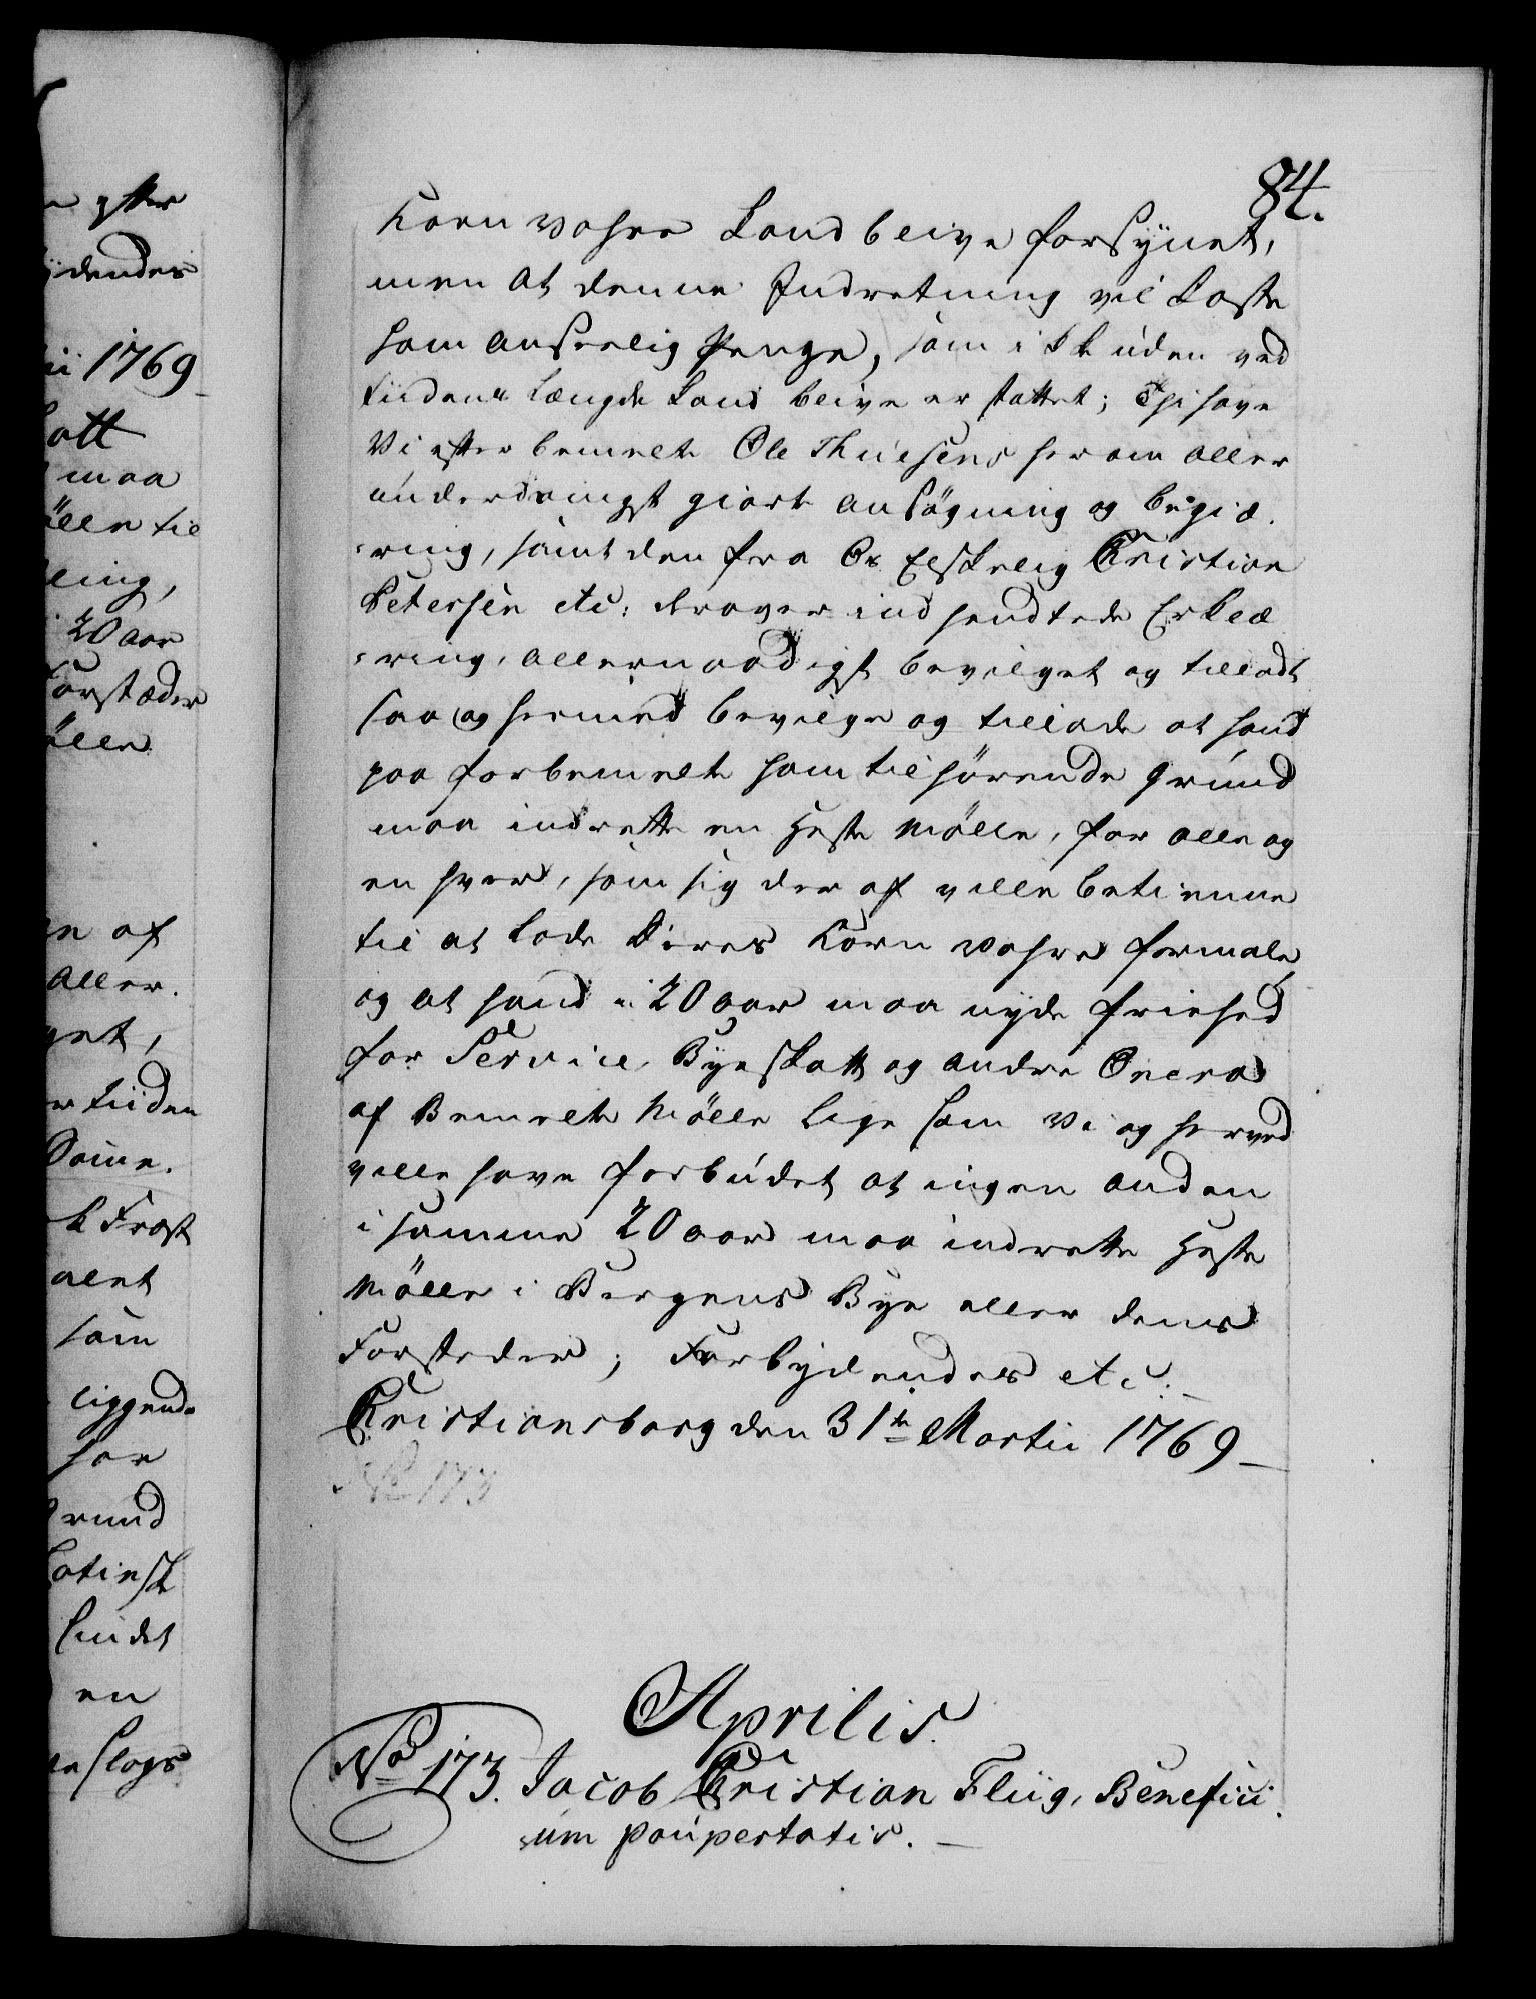 84.
Korn vahre kand blive forsÿnet,
men at denne Indretning vil koste
ham anseelig Penge, som ikke uden ved
tiidens Længde kand blive erstattet; Thi have
Vi efter bemelte Ole Thuesens herom aller
underdanigst giorte ansögning og begiæ-
ring, samt den fra Os Elskelig Christian
Petersen etc: derover indsendtede Erklæ
ring, allernaadigst bevilget og tilladt
saa og hermed bevilge og tillade at hand
paa forbemelte ham tilhörende Grund
maa indrette en Heste Mölle, for alle og
en hver, som sig der af ville betienne
til at lade Deres Korn vahre formale,
og at hand i 20 aar maa nyde friehed
for Service, Byeskatt og andre Onera
af Bemelte Mölle lige som Vi og herved
ville have forbudet at ingen anden
i samme 20 aar maa indrette Heste
Mölle i Bergens Bye eller dens
Forstæder; Forbydendes etc:
Christiansborg den 31te Martii 1769
No 173
Aprilis.
No 173. Jacob Christian Flüg, Benefici
um paupertatis.
efter
ydendes
ii 1769
att
maa
ölle til
ling,
20 aar
Forstæder
ölle
en af
aller.
get,
er tiiden
Same.
k Frost
som
liggende
har
Grund
Latinsk
en